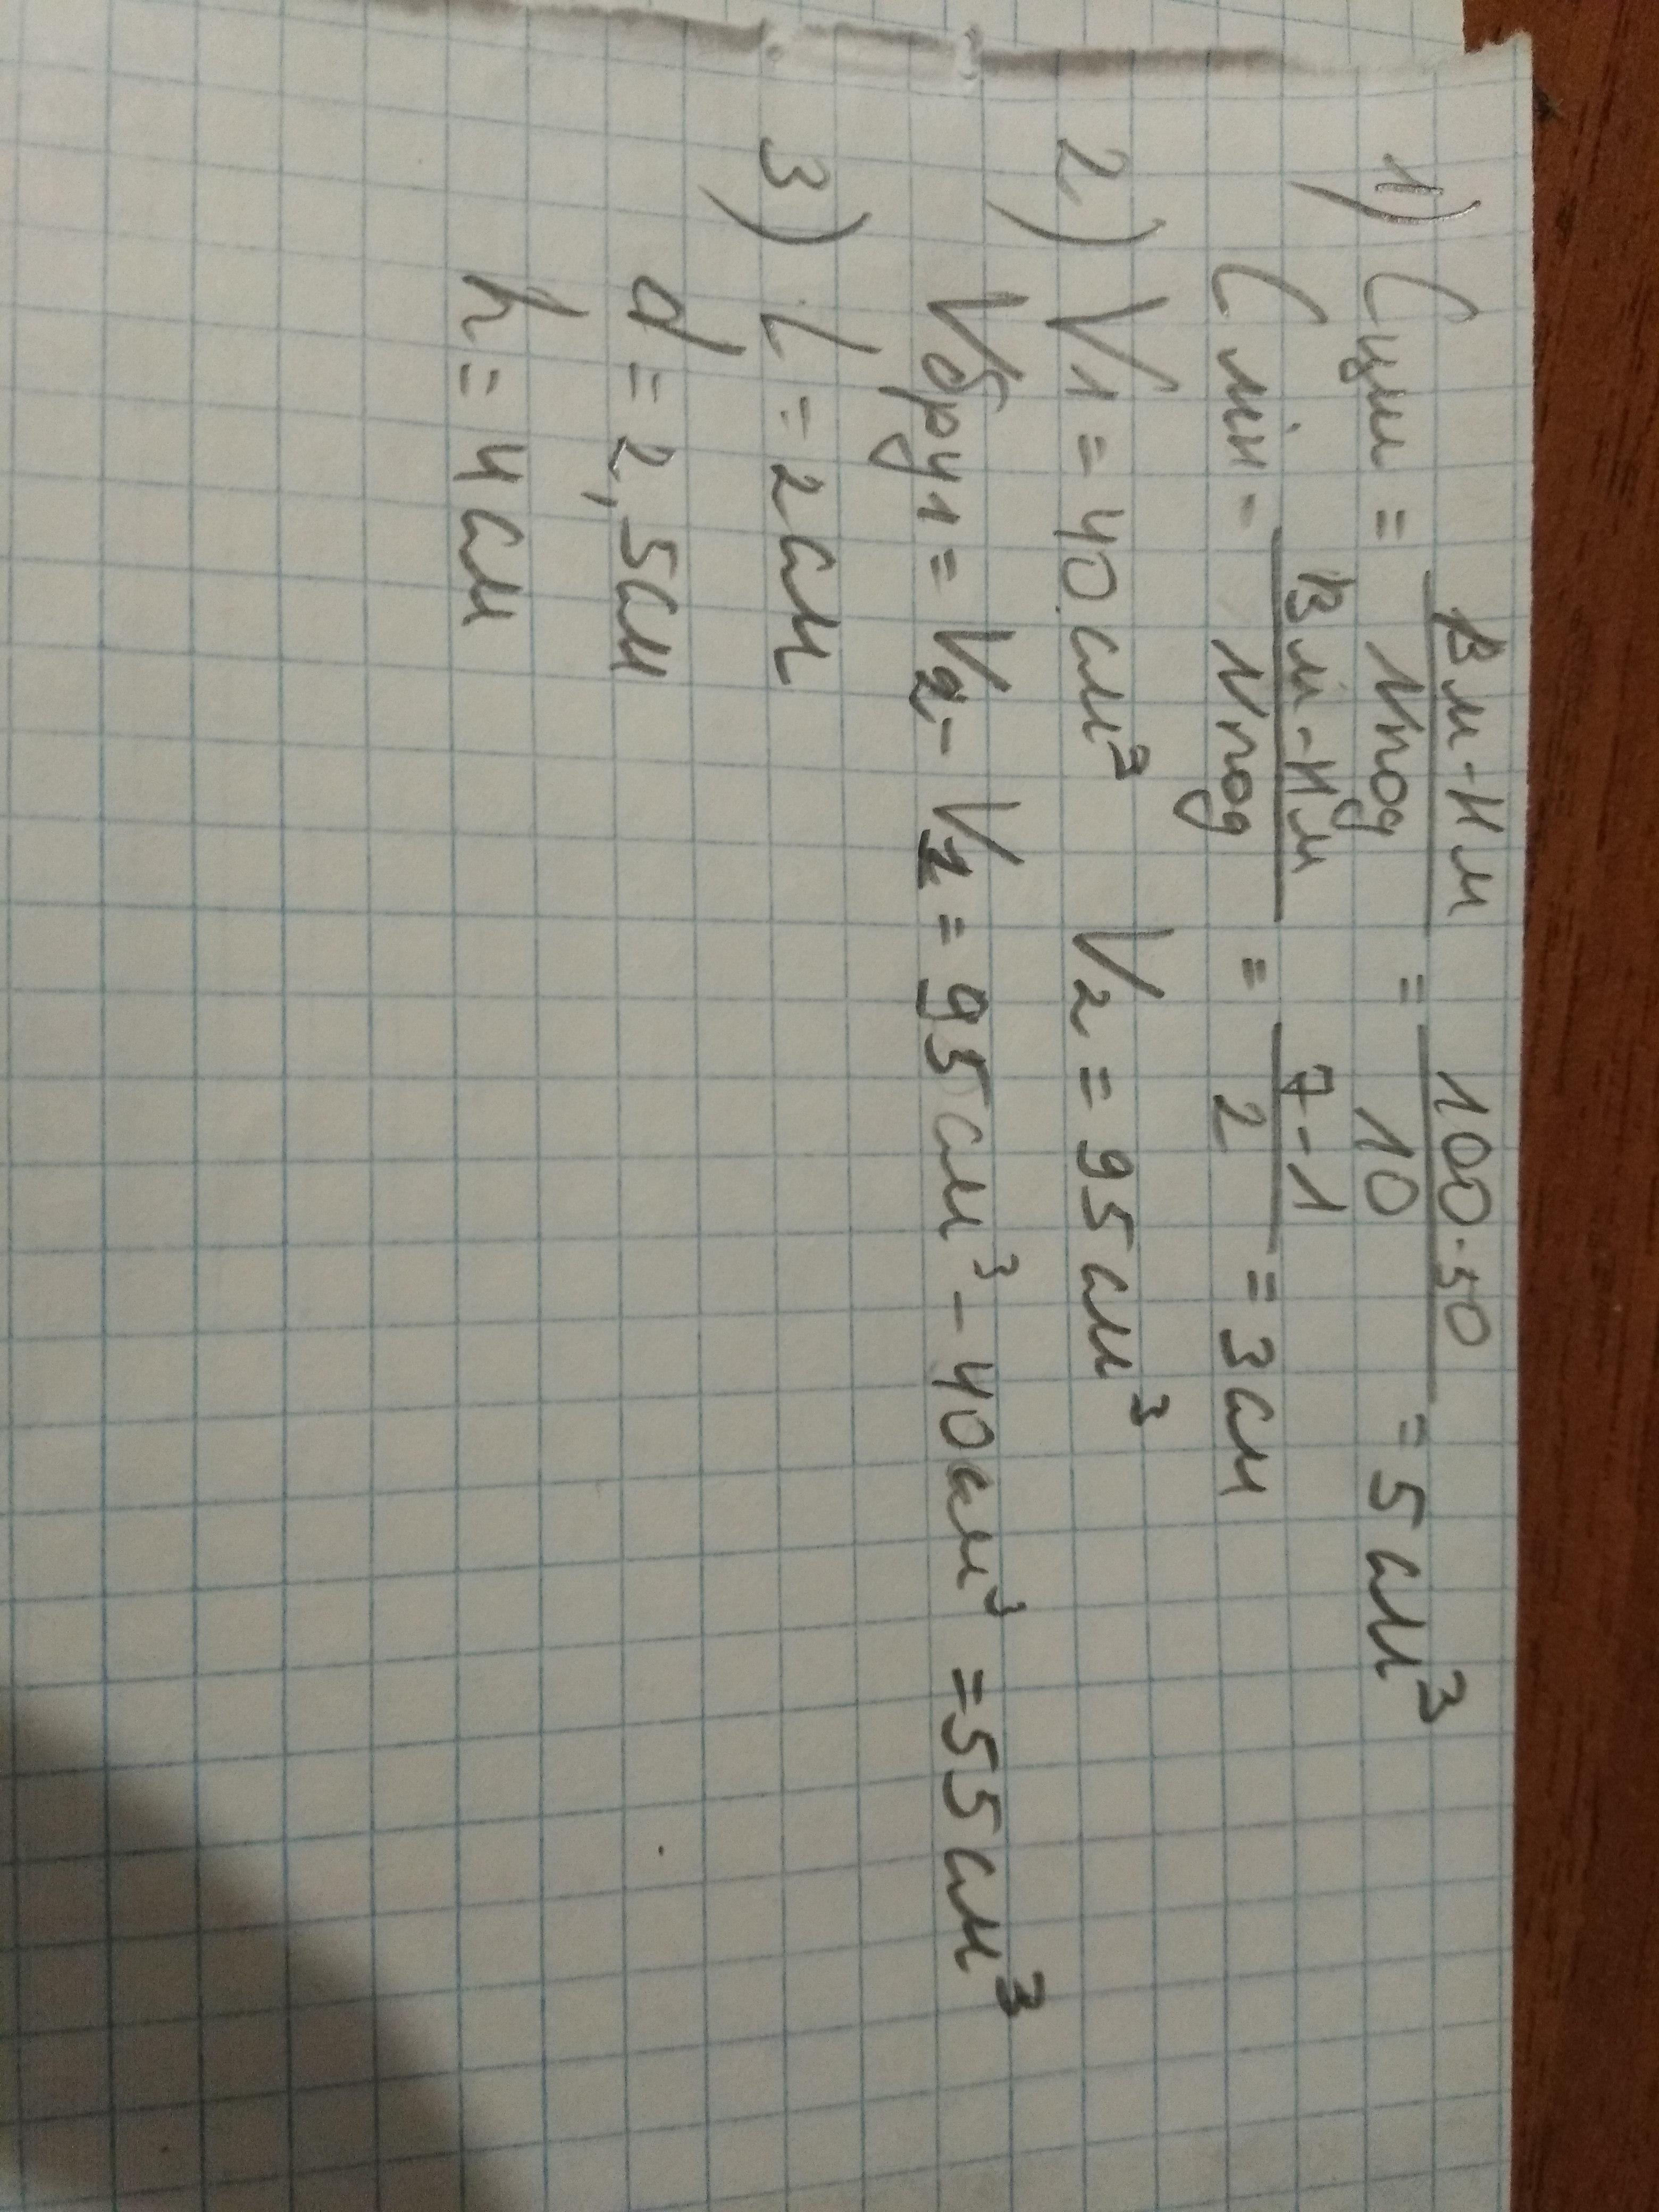 1) Cцил = Вм-Нм/Nпод = 100-50/10 = 5 см³
Cлін - Вм-Нм/Nпод = 7-1/2 = 3 см
2) V1 = 40 см³ V2 = 95 см³
Vбру1 = V2 - V1 = 95 см³ - 40 см³ = 55 см³
3) l = 2 см
d = 2,5 см
h = 4 см